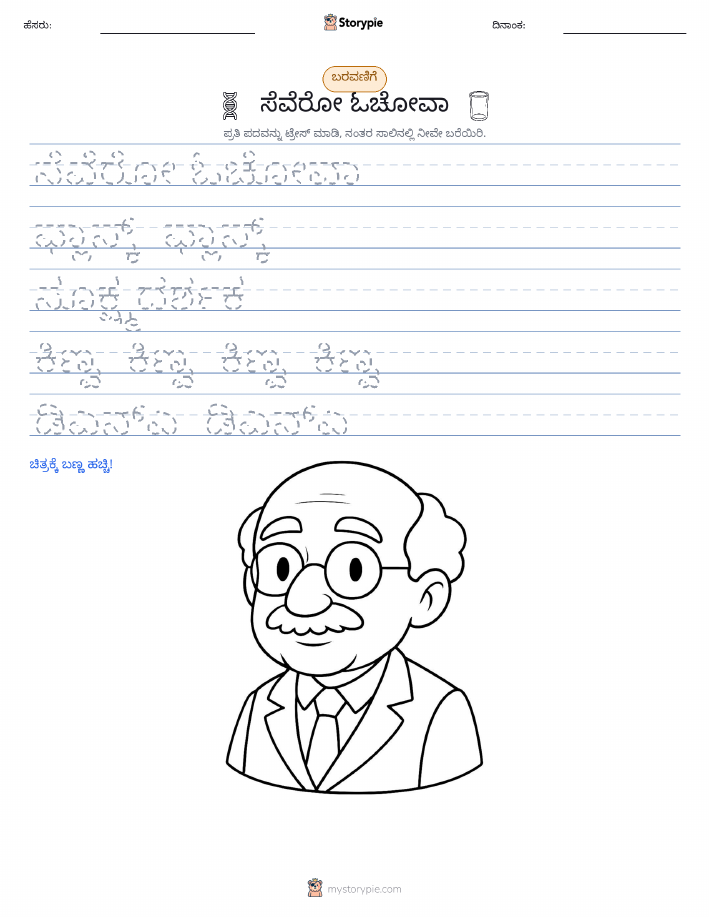 ಹೆಸರು:
Storypie
ದಿನಾಂಕ:
ಬರವಣಿಗೆ
ಸೆವೆರೋ ಓಚೋವಾ
ಪ್ರತಿ ಪದವನ್ನು ಟ್ರೇಸ್ ಮಾಡಿ, ನಂತರ ಸಾಲಿನಲ್ಲಿ ನೀವೇ ಬರೆಯಿರಿ.
ಸೆವೆರೋ ಓಚೋವಾ
ಫ್ಲಾಸ್ಕ್ ಫ್ಲಾಸ್ಕ್
ಕಿಣ್ವ ಕಿಣ್ವ ಕಿಣ್ವ ಕಿಣ್ವ
ಡಿಎನ್ಎ ಡಿಎನ್ಎ
ಚಿತ್ರಕ್ಕೆ ಬಣ್ಣ ಹಚ್ಚಿ!
mystorypie.com